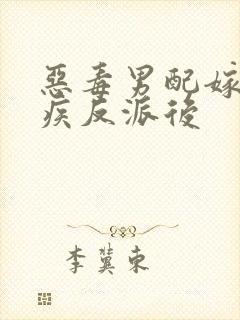 惡毒男配嫁
疾反派後
李冀東